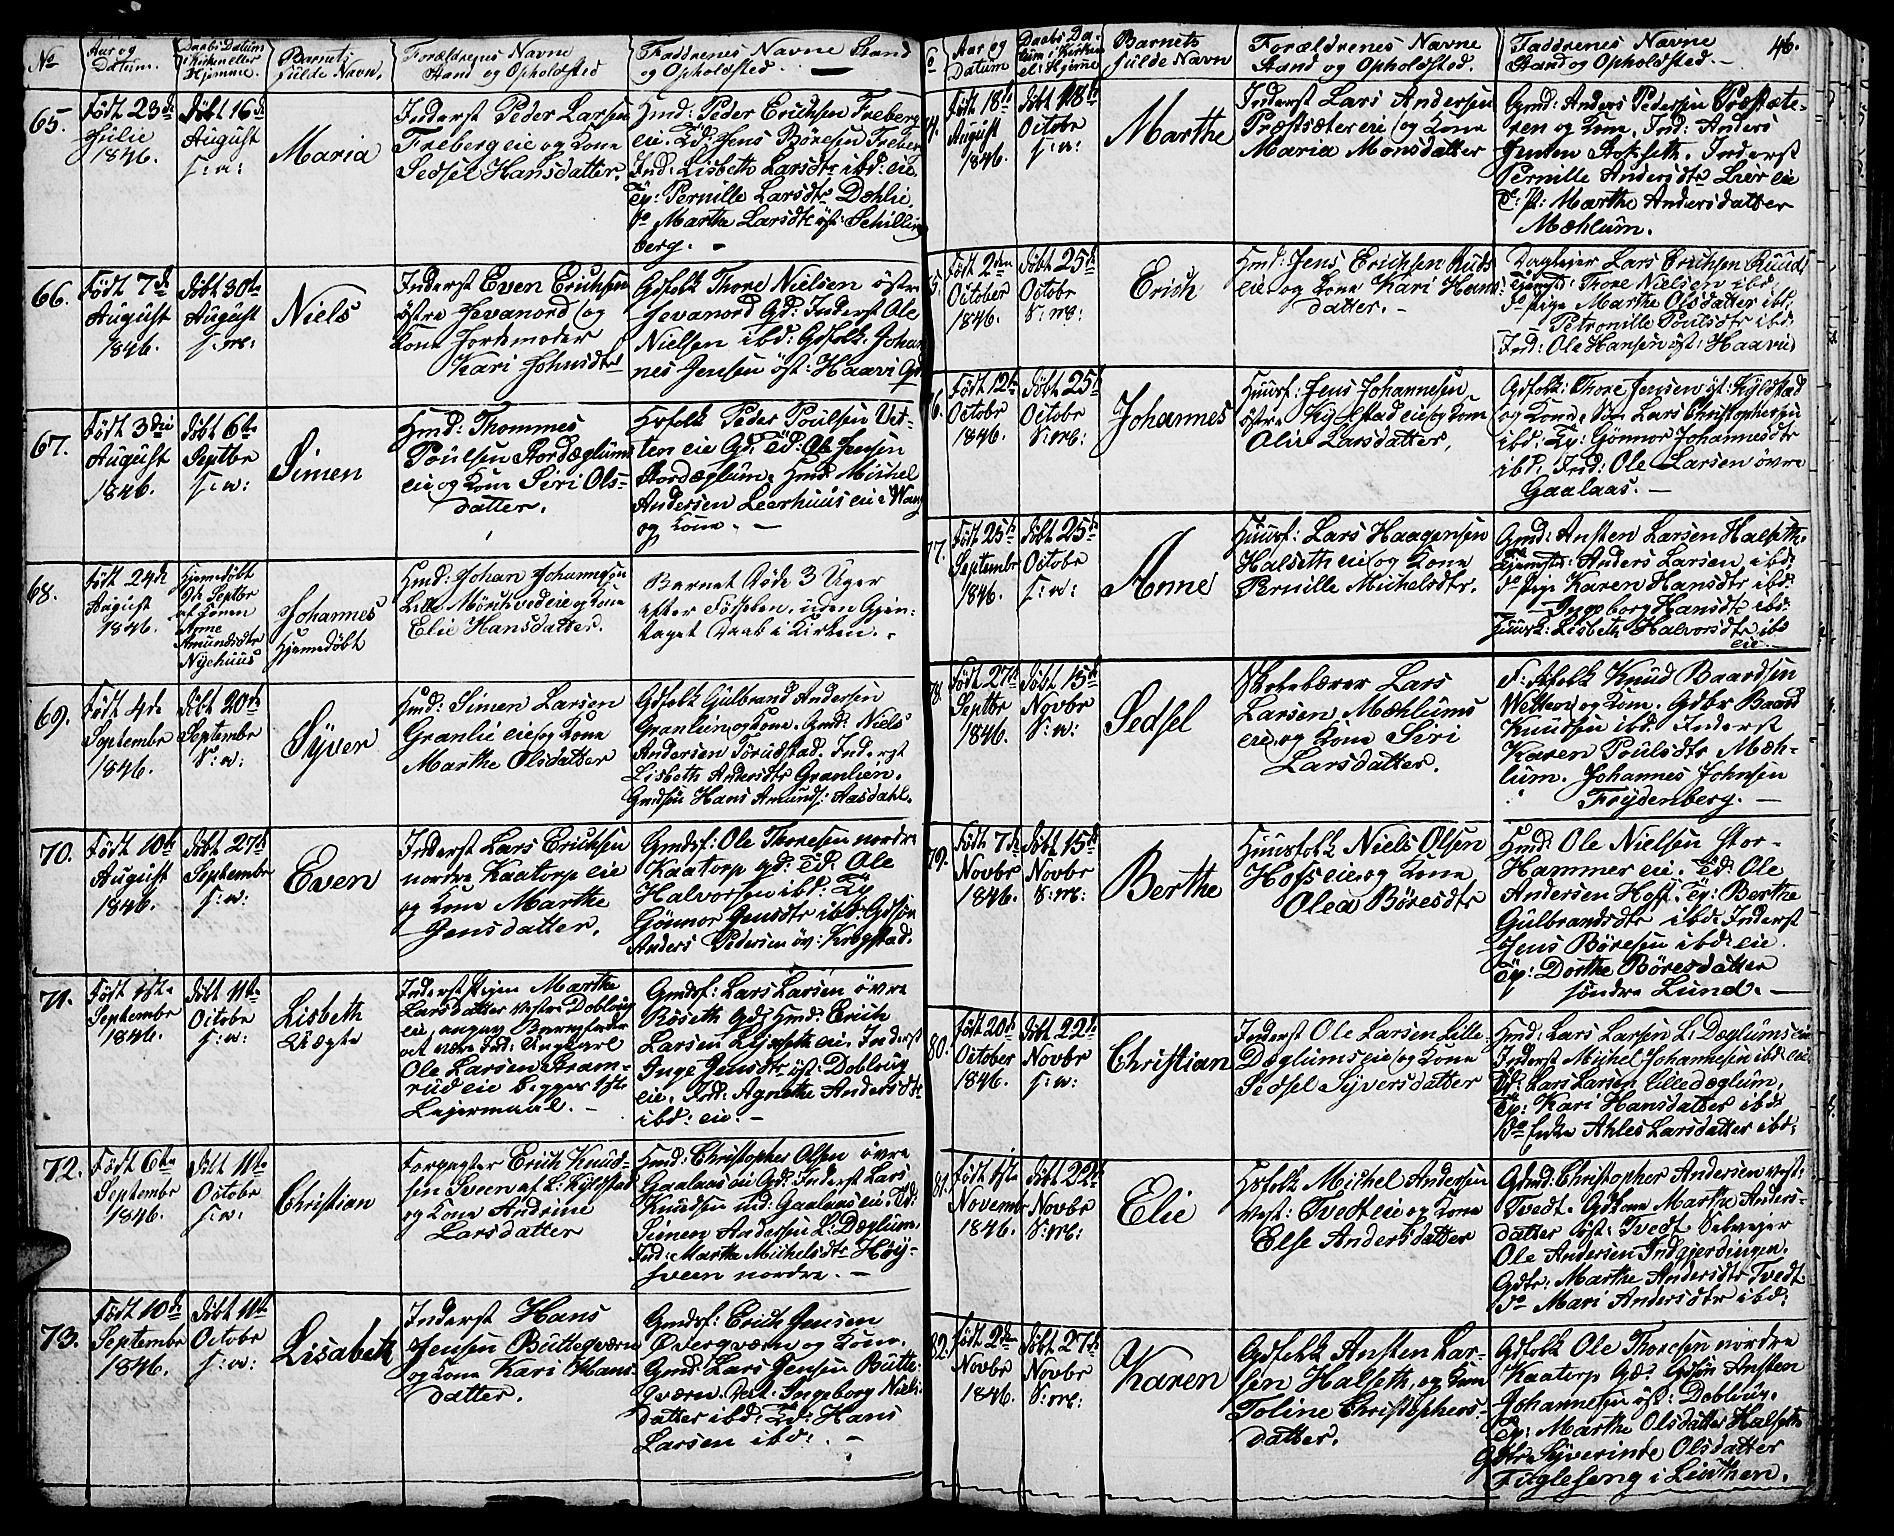 No
Aar og
Datum.
Daabs Datum
i Kirken eller
Hjemme.
Barnets
fulde Navn.
Forældrenes Navne
Stand og Opholdsted
Faddrenes Navne Stand
og Opholdsted.
65.
Født 23de
Julie
1846.
Døbt 16de
August
Maria
Inderst Peder Larsen
Freberg eie og Kone
Sedsel Hansdatter.
Hmd: Peder Erichsen Freberg
eie. Td: Jens Böresen Freberg
Ind: Lisbeth Larsdtr ibd: eie
Tp: Pernille Larsdtr Dæhlie,
do Martha Larsdtr öst: Schilling
berg.
66.
Født 7de
August
1846.
Döbt 30te
August
Niels
Inderst Even Erichsen
östre Jevanord og
Kone Jordemoder
Kari Johnsdtr
Gdfolk Thore Nielsen östre
Jevanord Gd: Inderst Ole
Nielsen ibd: Gdfolk: Johan
nes Jensen öst: Haavi Gd
67.
Født 3die
August
1846.
Döbt 6te
Septbr
Simen
Hmd: Thommes
Poulsen Stordæglums
eie og Kone Siri Ols-
datter.
Hsfolk Peder Poulsen Vet-
ten eie Gd: Td: Ole Jensen
Stordæglum. Hmd Michel
Andersen Leerhuus eie Wang
og Kone.
68.
Født 24de
August
1846.
Hjemmedøbt
Septbr
af Konen
Anne
Amundsdtr
Nyehuus
Johannes
Hjemmedøbt
Hmd: Johan Johannesen
Lille Mörchved eie og Kone
Elie Hansdatter.
Barnet Döde 3 Uger
efter Födselen, uden Gjen-
taget Daab i Kirken.
69.
Født 4de
Septembr
1846.
Döbt 20de
Septembr
Syver
Hmd: Simen Larsen
Granlie eie og Kone
Marthe Olsdatter
Gdfolk Gulbrand Andersen
Granlien og Kone. Gmd: Niels
Andersen Torudstad. Inderst
Lisbeth Andersdtr Granlien.
Gmdsön Hans Amunds: Aasdahl.
70.
Født 10de
August
1846.
Döbt 27de
Septembr
Even
Inderst Lars Erichsen
nordre Kaatorp eie
og Kone Marthe
Jensdatter.
Gmdsf: Ole Thoresen nordre
Kaatorp gd: Td: Ole
Halvorsen ibd: Tp
Gönnor Jensdtr ibd: Gdsön
Anders Pedersen öv: Krogstad.
71.
Født 1ste
Septembr
1846.
Döbt 11te
Octobr
Lisbeth
Uægte
Inderst Pigen Marthe
Larsdatter Vestre Dobloug
eie, angav Barnefader
at være Ind: Ungkarl
Ole Larsen Stram-
rud eie begges 1ste
Lejermaal.
Gmdsf: Lars Larsen övre
Röseth Gd: Hmd: Erich
Larsen eie: Inderst
Inge Jensdtr öst: Doblaug
eie. Ind: Agnethe Andersdtr
ibd: eie.
72.
Født 6te
Septembr
1846.
Döbt 11te
Octobr
Christian
Forpagter Erich Knud-
sen Sveen af L: Kylstad
og Kone Andrine
Larsdatter
Hmd: Christopher Olsen övre
Gaalaas eie Gd: Inderst Lars
Knudsen nd: Gaalaas eie. Td:
Simen Andersen L: Dæglum.
Ind: Martha Michelsdtr Höy-
sveen nordre.
73.
Født 10de
Septembr
1846.
Döbt 11te
Octobr
Lisabeth
Inderst Hans
Jensen Butteqværn
og Kone Kari Hans-
datter.
Gmdsf: Erich Jensen
Overqværn og Kone.
Gmd: Lars Jensen Butte-
qværn. Ingeborg Niels-
datter ibd: Td: Hans
Larsen ibd:
Aar og
Datum
Daabs Da-
tum i Kirken
el: Hjeme
Barnets
fulde Navn
Forældrenes Navne
Stand og Opholdsted.
Faddrenes Navne
Stand og Opholdsted.
46.
74.
Født 18de
August
1846.
Döbt 18de
Octobr
Marthe
Inderst Lars Andersen
Præstsæter eie og Kone
Maria Monsdatter
Gmd: Anders Pedersen Præstsæte-
ren og Kone. Ind: Anders
Jensen Inderst
Pernille Andersdtr Lier eie
Marthe Andersdatter
Mæhlum.
75.
Født 2den
October
1846.
Döbt 25de
Octobr
Erich
Hmd: Jens Erichsen Ruds
eie og Kone Kari Hans-
datter.
Daglejer Lars Erichsen Ruud,
Tjenestd: Thore Nielsen ibd:
do pige Marthe Olsdatter ibd:
Petronille Poulsdtr ibd:
Ind: Ole Hansen öst: Haavie
76.
Født 12te
Octobr
1846.
Döbt 25de
Octobr
Johannes
Huusf: Jens Johannesen
östre Kylstad eie og Kone
Olie Larsdatter.
Gdfolk: Thore Jensen öst: Kyldstad
og Kone. Lars Christophersen
ibd: Tp: Gönnor Johannesdtr
ibd. Ind: Ole Larsen övre
Gaalaas.
77.
Født 25de
Septembr
1846.
Döbt 25de
Octobr
Anne
Huusf: Lars Haagensen
Halseth eie og Kone
Pernille Michelsdtr.
Gmd: Ansten Larsen Halseth.
Tjenestd: Anders Larsen ibd:
do Pige Karen Hansdtr ibd:
Ingeborg Hansdtr ibd:
Huusk: Lisbeth Halvorsdtr ibd
eie.
78.
Født 27de
Septbr
1846.
Döbt 15de
Novbr
Sedsel
Lars
Larsen Mæhlums
eie og Kone Siri
Larsdatter.
Knud Baardsen
Wetten og Kone. Gdbr Baard
Knudsen ibd. Inderst
Karen Poulsdtr Mæh-
lum. Johannes Johnsen
Frydenberg.
79.
Født 7de
Novbr
1846.
Döbt 15de
Novbr
Berthe
Huusfolk Niels Olsen
Hofs eie og Kone
Olea Böresdtr
Hmd: Ole Nielsen Stor-
Hammer eie. Td: Ole
Andersen Hoff. Tp: Berthe
Gulbrandsdtr ibd: Inderst
Jens Böresen ibd: eie.
Tp: Dorthe Böresdatter
söndre Lund.
80.
Født 20de
October
1846.
Döbt 22de
Novbr
Christian
Inderst Ole Larsen Lille
Dæglums eie og Kone
Sedsel Syversdatter
Hmd: Lars Larsen L: Dæglums eie
Inderst Michel Johannesen ibd: eie
Td: Lars Larsen Lilledæglum.
Tp: Kari Hansdatter ibd:
do Enke Ahles Larsdatter ibd:
81.
Født 1ste
Novembr
1846.
Döbt 22de
Novbr
Elie
Hsfolk Michel Andersen
Vest: Tvedt eie og Kone
Else Andersdatter
Gdmd: Christopher Andersen vest:
Tvedt. Gdkone Marthe Anders-
datter öst: Tvedt. Selvejer
Ole Andersen Indgjerdingen.
Gdtr: Marthe Andersdtr Tvedt
do Mari Andersdtr ibd:
82.
Født 2den
Novbr
1846.
Döbt 27de
Novbr
Karen
Gdfolk Ansten Lar-
sen Halseth og Kone
Toline Christophers-
datter.
Gdfolk Ole Thoresen nordre
Kaatorp Gd: Gdsön Ansten
Johannesen öst: Doblaug.
Tp: Marthe Olsdatter Halseth
Gdtr: Syverinde Olsdatter
Fugleseng i Leuthen.